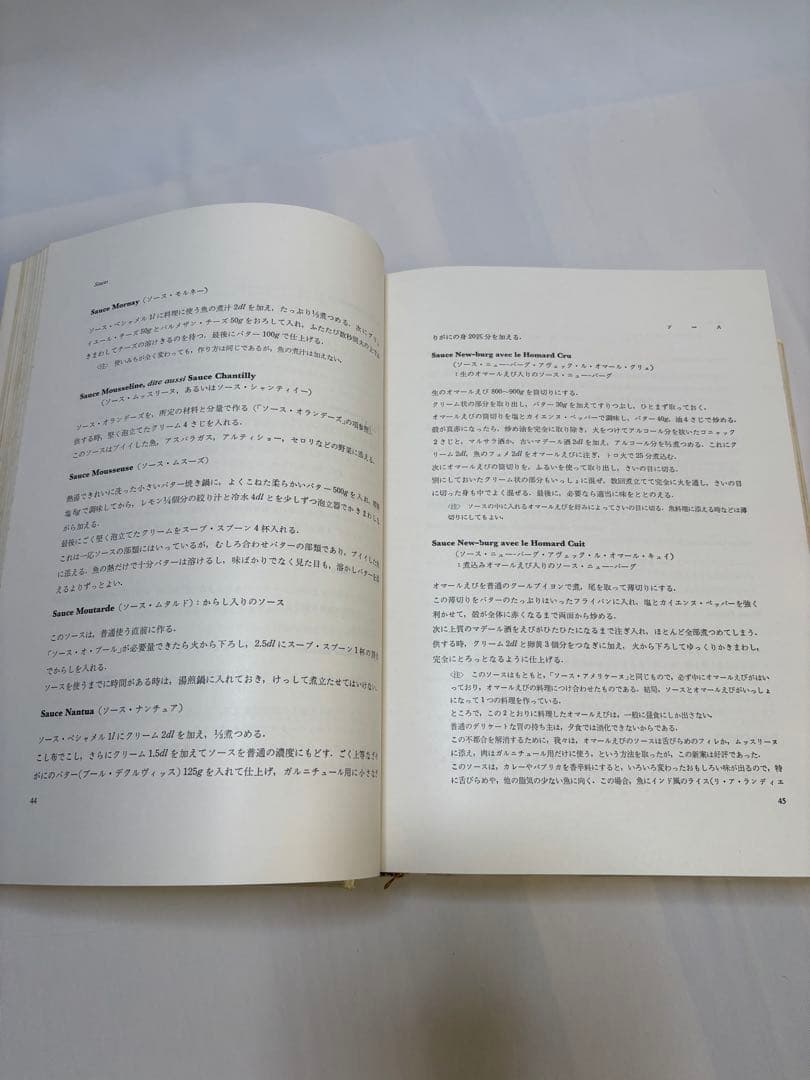 Sauces
Sauce Mornay(ソース・モルネー)
ソース・ベシャメル1lに料理に使う魚の煮汁2dlを加え,たっぷり⅓煮つめる.次にグリュ
ィエール・チーズ50gとパルメザン・チーズ50gをおろして入れ,ふたたび数秒間火の上で
きまわしてチーズの溶けきるのを待つ.最後にバター100gで仕上げる.
〈注〉 使いみちが全く変わっても,作り方は同じであるが,魚の煮汁は加えない.
Sauce Mousseline, dite aussi Sauce Chantilly
(ソース・ムッスリーヌ,あるいはソース・シャンティイー)
ソース・オランデーズを,所定の材料と分量で作る(「ソース・オランデーズ」の項参照).
供する時,堅く泡立てたクリーム4さじを入れる.
このソースはブイイした魚,アスパラガス,アルティショー,セロリなどの野菜に添える.
Sauce Mousseuse(ソース・ムスーズ)
熱湯できれいに洗った小さいバター焼き鍋に,よくこねた柔らかいバター500gを入れ,
塩8gで調味してから,レモン¼個分の絞り汁と冷水4dlとを少しずつ泡立器でかきまわしな
がら加える.
最後にごく堅く泡立てたクリームをスープ・スプーン4杯入れる.
これは一応ソースの部類にはいっているが,むしろ合わせバターの部類であり,ブイイした魚
に添える.魚の熱だけで十分バターは溶けるし,味ばかりでなく見た目も,溶かしバターを添
えるよりずっとよい.
Sauce Moutarde(ソース・ムタルド):からし入りのソース
このソースは,普通使う直前に作る.
「ソース・オ・ブール」が必要量できたら火から下ろし,2.5dlにスープ・スプーン1杯の割合
でからしを入れる.
ソースを使うまでに時間がある時は,湯煎鍋に入れておき,けっして煮立たせてはいけない.
Sauce Nantua(ソース・ナンチュア)
ソース・ベシャメル1lにクリーム2dlを加え,⅓煮つめる.
こし布でこし,さらにクリーム1.5dlを加えてソースを普通の濃度にもどす.ごく上等なざり
がにのバター(ブール・デクルヴィッス)125gを入れて仕上げ,ガルニチュール用に小さなざ
44
ソース
りがにの身20匹分を加える.
Sauce New-burg avec le Homard Cru
(ソース・ニュー・バーグ・アヴェック・ル・オマール・クリュ)
:生のオマールえび入りのソース・ニュー・バーグ
生のオマールえび800〜900gを筒切りにする.
クリーム状の部分を取り出し,バター30gを加えてすりつぶし,ひとまず取っておく.
オマールえびの筒切りを塩とカイエンヌ・ペッパーで調味し,バター40g,油4さじで炒める.
殻が真赤になったら,炒め油を完全に取り除き,火をつけてアルコール分を抜いたコニャック
2さじと,マルサラ酒か,古いマデール酒2dlを加え,アルコール分を⅔煮つめる.これにク
リーム2dl,魚のフュメ2dlをオマールえびに注ぎ,トロ火で25分煮込む.
次にオマールえびの筒切りを,ふるいを使って取り出し,さいの目に切る.
別にしておいたクリーム状の部分もいっしょに混ぜ,数回煮立てて完全に火を通し,さいの目
に切った身も中でよく混ぜる.最後に,必要なら適当に味をととのえる.
〈注〉 ソースの中に入れるオマールえびを好みによってさいの目に切る.魚料理に添える時などは薄
切りにしてもよい.
Sauce New-burg avec le Homard Cuit
(ソース・ニュー・バーグ・アヴェック・ル・オマール・キュイ)
:煮込みオマールえび入りのソース・ニュー・バーグ
オマールえびを普通のクールブイヨンで煮,尾を取って薄切りにする.
この薄切りをバターのたっぷりはいったフライパンに入れ,塩とカイエンヌ・ペッパーを強く
利かせて,殻が全体に赤くなるまで両面から炒める.
次に上質のマデール酒をえびがひたひたになるまで注ぎ入れ,ほとんど全部煮つめてしまう.
供する時,クリーム2dlと卵黄3個分をつなぎに加え,火から下ろしてゆっくりかきまわし,
完全にとろっとなるように仕上げる.
〈注〉 このソースはもともと,「ソース・アメリケーヌ」と同じもので,必ず中にオマールえびがはい
っており,オマールえびの料理につけ合わせたものである.結局,ソースとオマールえびがいっしょ
になって1つの料理を作っている.
ところで,この2とおりに料理したオマールえびは,一般に昼食にしか出さない.
普通のデリケートな胃の持ち主は,夕食では消化できないからである.
この不都合を解消するために,我々は,オマールえびのソースは舌びらめのフィレか,ムッスリーヌ
に添え,肉はガルニチュール用だけに使う,という方法を取ったが,この新案は好評であった.
このソースは,カレーやパプリカを香辛料にすると,いろいろ変わったおもしろい味が出るので,特
に舌びらめや,他の脂気の少ない魚に向く.この場合,魚にインド風のライス(リ・ア・ランディエ
45